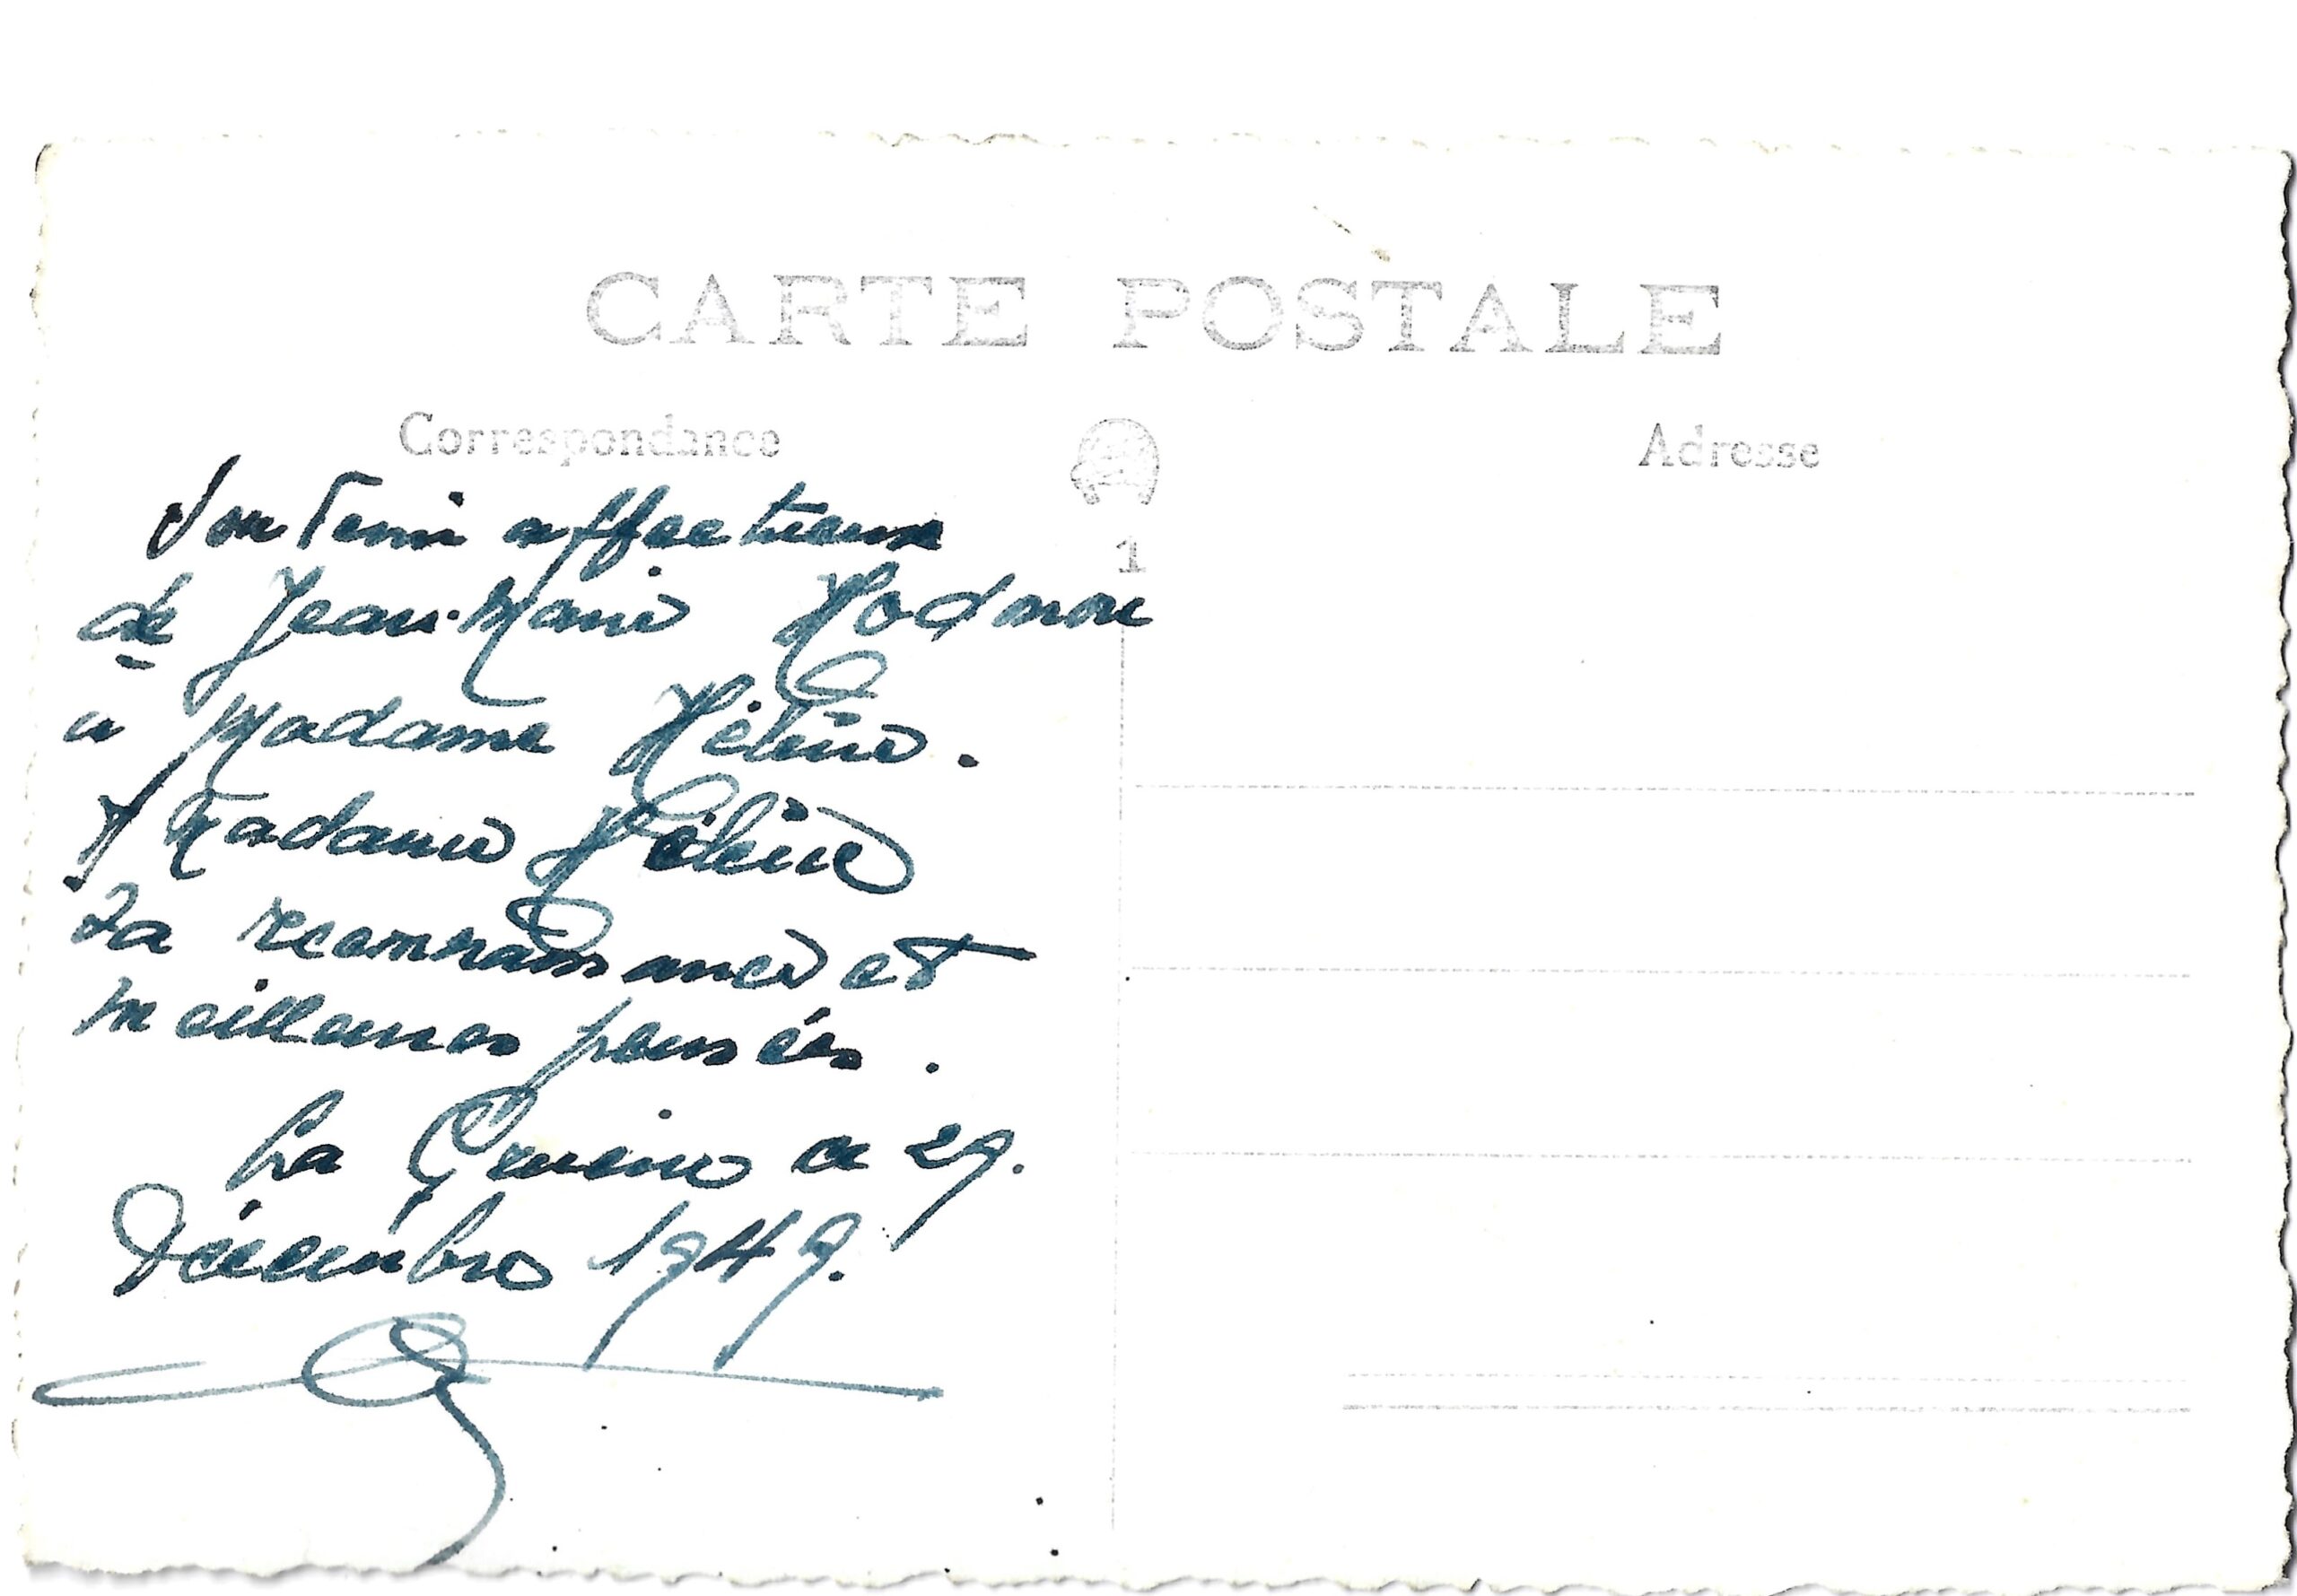 CARTE POSTALE
Correspondance
Adresse
1
Souvenir affectueux
de Jean-Marie
a Madame Hélène.
Madame Hélène
La reconnaissance et
meilleures pensées.
La ce 29.
Décembre 1949.